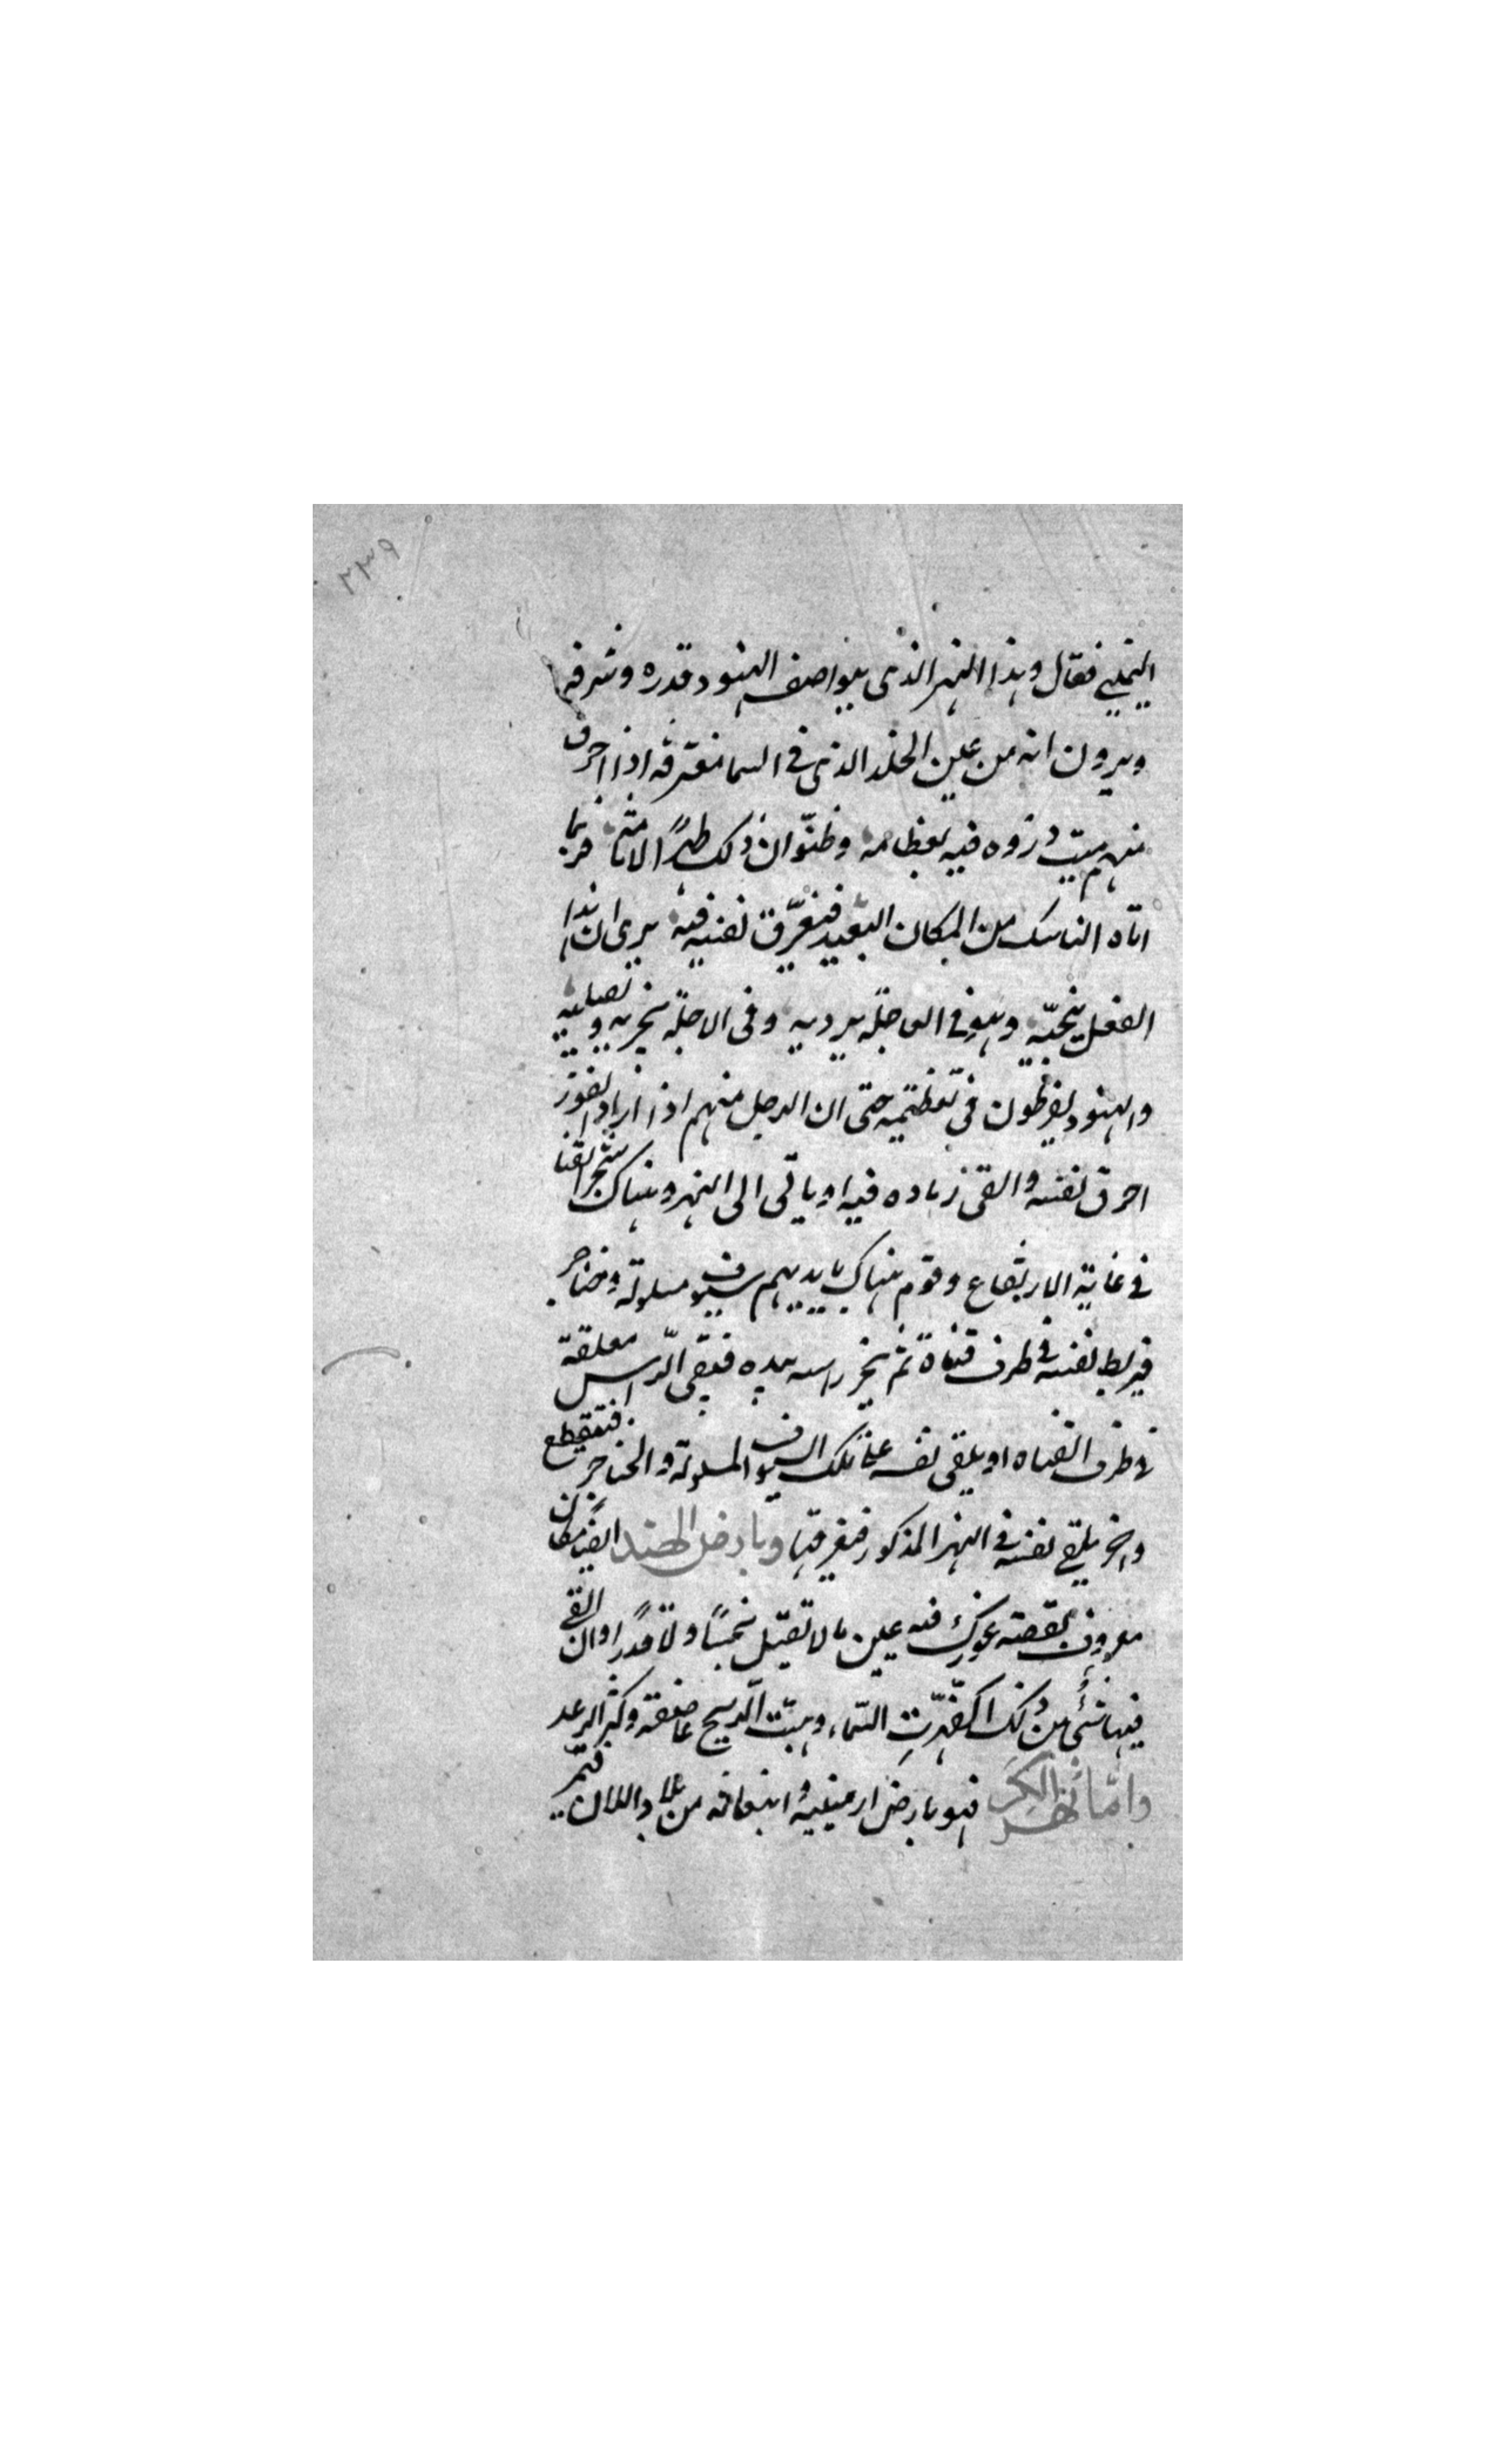 ٢٣٩
اليميني فقال وهذا النهر الذي يتواصف الهنود قدره وشرفه
ويرون انه من عين الخلد الذي في السما مغترفه اذا احرق
منهم ميت دزوه فيه بعظامه وظنّوا ان ذلك طهرًا لاثامه فربما
اتاه الناسك من المكان البعيد فيغرّق نفسه فيه يرى ان هذا
الفعل ينجيّه وهو في العاجلة يرديه وفي الاجلة يخزيه ويصليه
والهنود يفرطون في تعظيمه حتى ان الرجل منهم اذا اراد الفوز
احرق نفسه والقى رماده فيه او ياتي الى النهر وهناك شجر القنا
في غاية الارتفاع وقوم هناك بايديهم سيوف مسلولة وخناجر
فيربط نفسه في طرف قناة ثم يخر راسه بيده فيبقى الراس معلقة
في طرف القناه او يلقى نفسه على تلك السيوف المسلولة والخناجر فيتقطع
واخر يلقي نفسه في النهر المذكور فيغرقها وبارض الهند ايضًا مكان
معروف بقصبه غورك فيه عين ما لا تقبل نجسًا ولا قذرًا وان القي
فيها شئ من ذلك اكفهرّت السّماء وهبّت الريح عاصفة وكثر الرعد
وامّا نهر الكر فهو بارض ارمينيه وانبعاثه من بلاد اللان فيمرّ